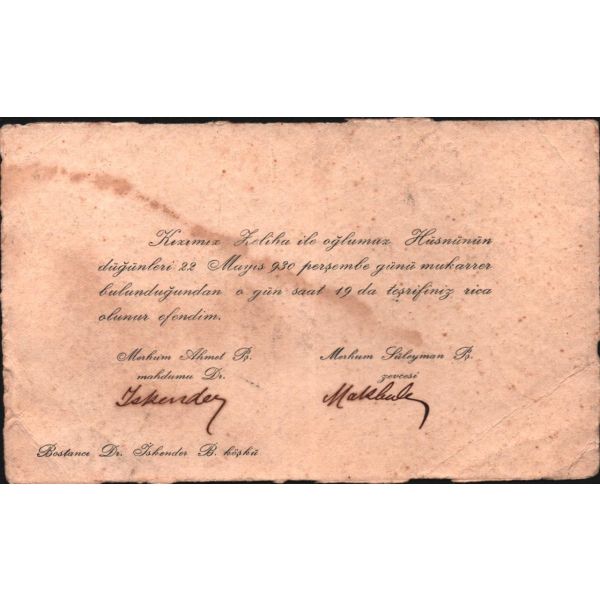 Kızımız Zeliha ile oğlumuz Hüsnünün
düğünleri 22 Mayıs 930 perşembe günü mukarrer
bulunduğundan o gün saat 19 da teşrifiniz rica
olunur efendim.
Merhum Ahmet Pş.
mahdumu Dr.
Iskender
Merhum Süleyman Pş.
zevcesi
Makbule
Bostancı Dr. Iskender B. köşkü